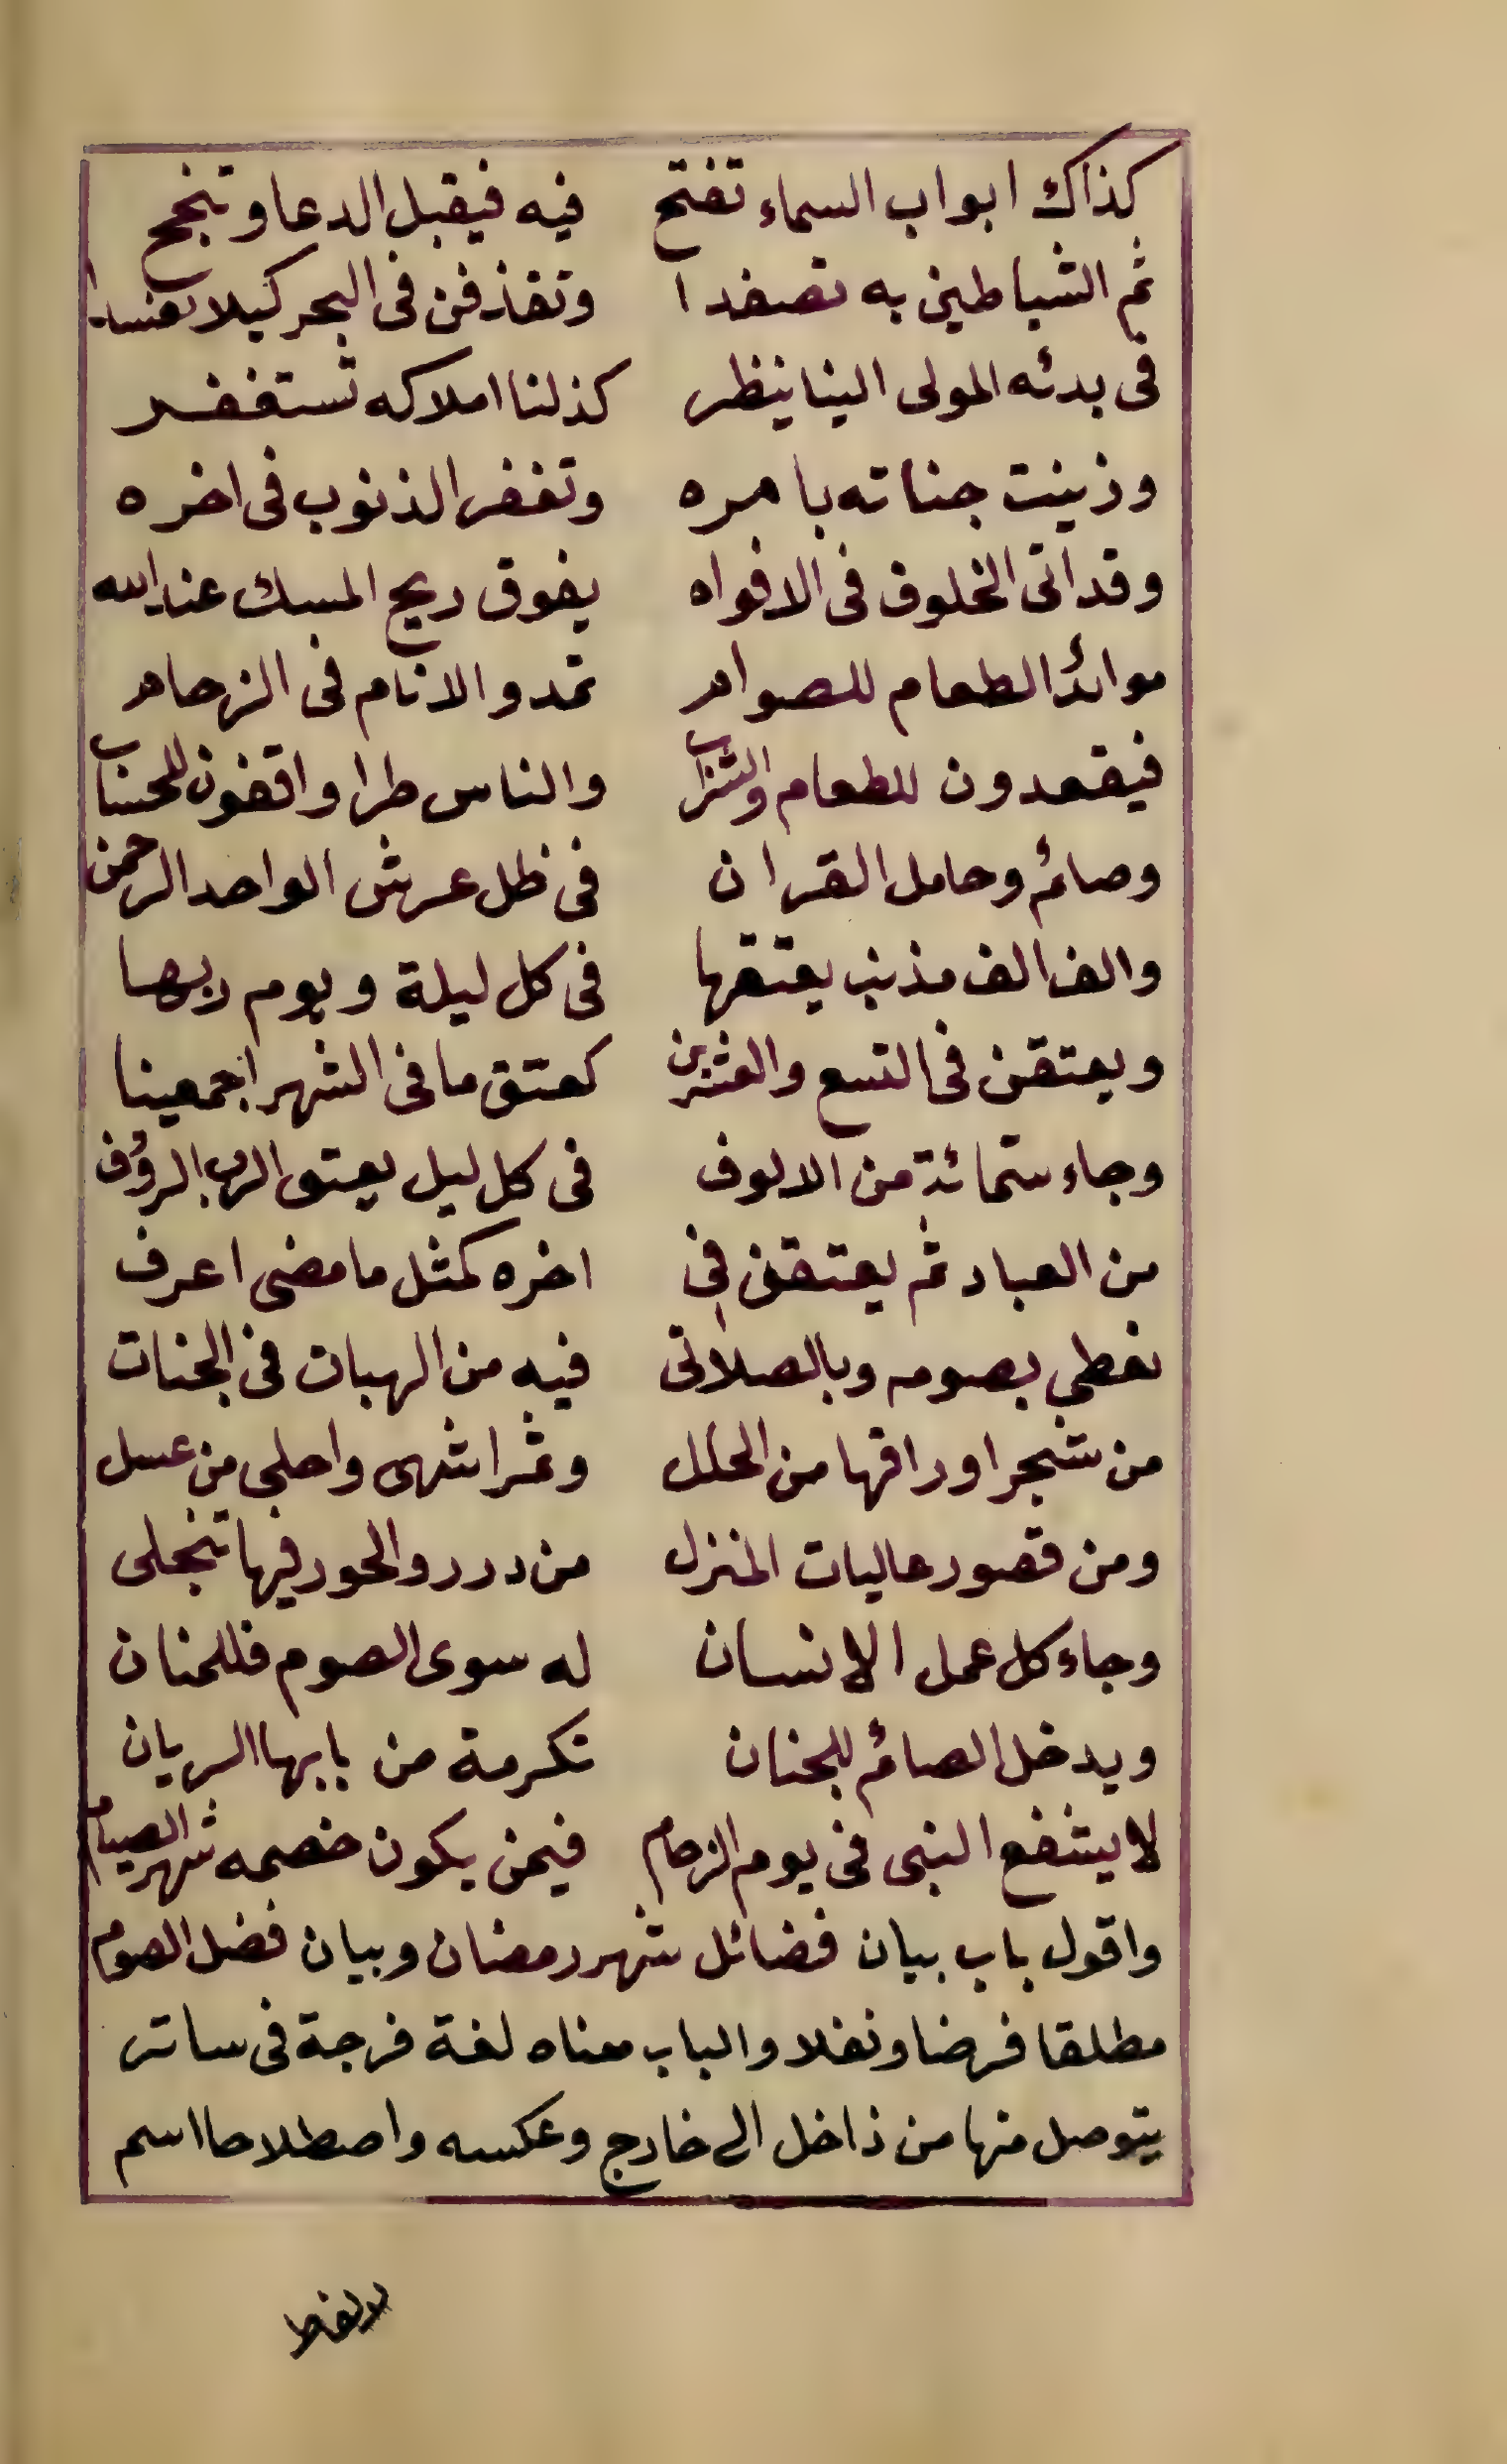 كذاك ابواب السماء تفتح فيه فيقبل الدعا وتنجح
ثم الشياطين به تصفدا وتقذفن فى البحر كيلا تفسدا
فى بدئه المولى الينا ينظر كذلنا املاكه تستغفر
وزينت جناته بامره وتغفر الذنوب فى اخره
وقد اتى الخلوف فى الافواه يفوق ريح المسك عند الله
موائد الطعام للصوام تمد و الانام فى الزحام
فيقعدون للطعام والشراب والناس طرا واقفون للحساب
وصائم وحامل القران فى ظل عرش الواحد الرحمن
والف الف مذنب يعتقها فى كل ليلة ويوم ربها
ويعتقن فى التسع والعشرين كعتق ما فى الشهر اجمعينا
وجاء ستمائة من الالوف فى كل ليل يعتق الرب الرؤف
من العباد ثم يعتقن فى اخره كمثل ما مضى اعرف
نعطى بصومه وبالصلاتى فيه من الهبات فى الجنات
من شجر اوراقها من الحلل وثمر اشهى واحلى من عسل
ومن قصور عاليات المنزل من درر والحور فيها تنجلى
وجاء كل عمل الانسان له سوى الصوم فللمنان
ويدخل الصائم للجنان تكرمة من بابها الريان
لا يشفع النبى فى يوم الزحام فيمن يكون خصمه شهر الصيام
واقول باب بيان فضائل شهر رمضان وبيان فضل الصوم
مطلقا فرضا ونفلا والباب معناه لغة فرجة فى ساتر
يتوصل منها من داخل الى خارج وعكسه واصطلاحا اسم